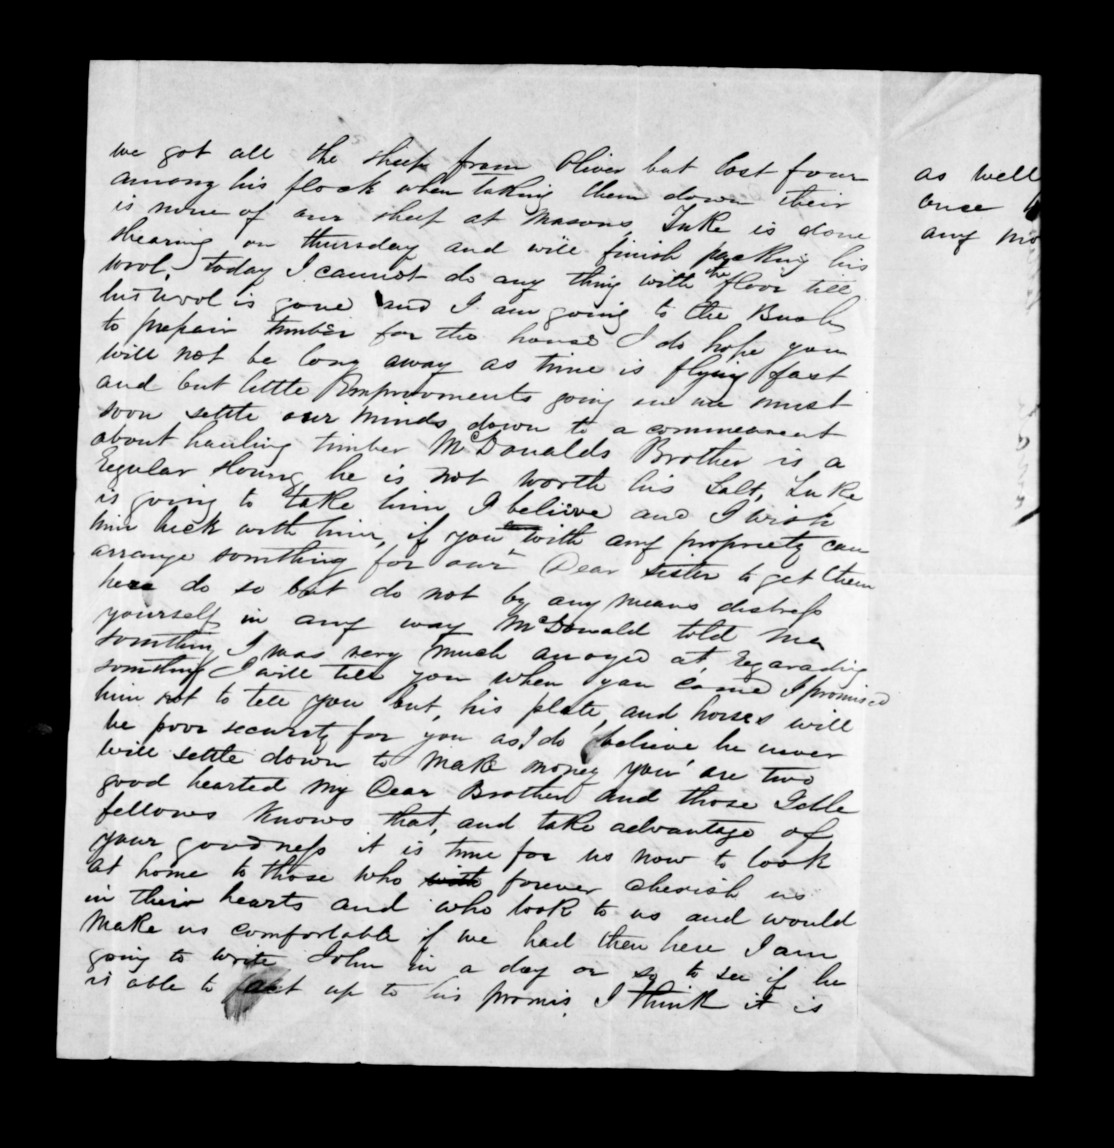 we got all the sheep from Oliver but lost four
among his flock when taking them down their
is none of our sheep at Masons, Luke is done
shearing on thursday and will finish packing his
wool, today I cannot do any thing with the floor till
his wool is gone and I am going to the Bush
to prepair timber for the house I do hope you
will not be long away as time is flying fast
and but little Emprovments going on we must
soon settle our minds down to a commencment
about hauling timber McDonalds Brother is a
Regular he is not worth his Salt, Luke
is going to take him, I believe and I wish
him luck with him, if you with any propriety can
arrange somthing for our Dear sister to get them
here do so but do not by any means distress
yourself in any way McDonald told me
somthing I was very much anoyed at, Regarading
somthing I will tell you when you come I promised
him not to tell you but, his plate, and horses will
be poor security for you as I do believe he never
will settle down to make money you are two
good hearted my Dear Brother and those
fellows knows that, and take advantage of
your goodness it is time for us now to look
at home to those who forever cherish us
in their hearts and who look to us and would
Make us comfortable if we had them here I am
going to write John in a day or so to see if he
is able to act up to his promis, I think it is
as well
once
any mo